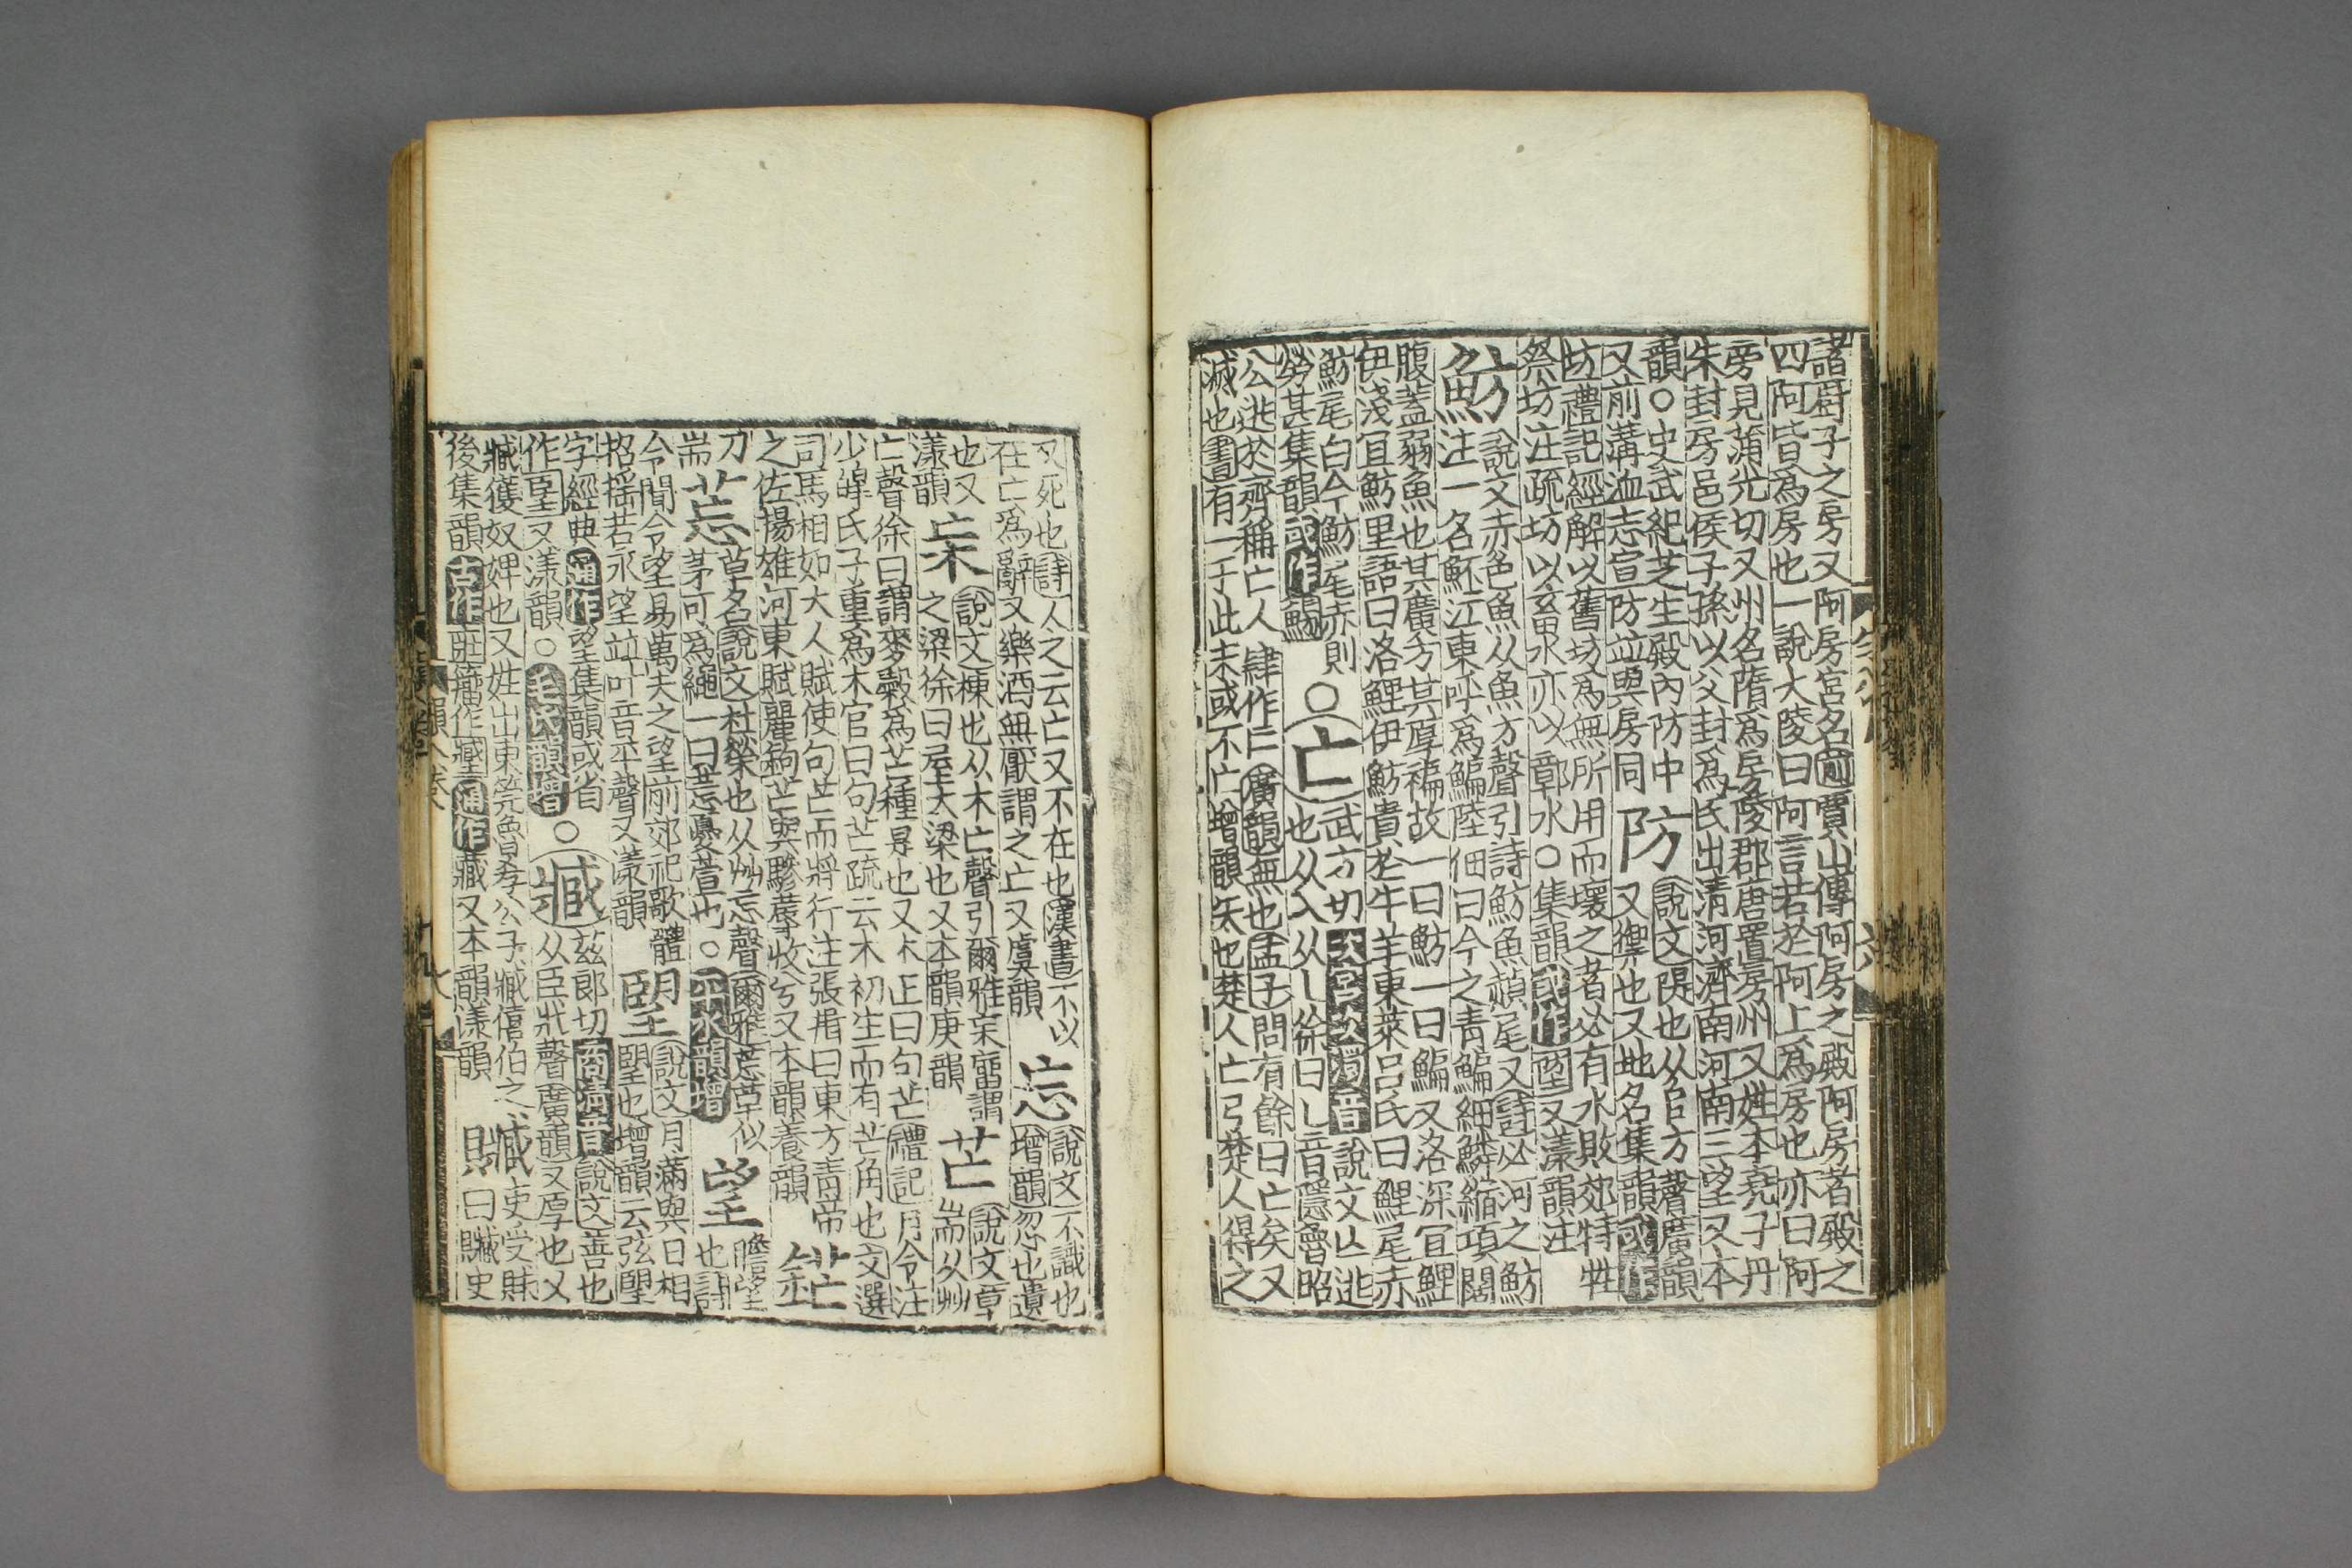 諸厨子之房又阿房宮名前賈山傳阿房之殿阿房者殿之
四阿皆爲房也一說大陵曰阿言若於阿上爲房也亦曰阿
旁見蒲光切又州名隋爲房陵郡唐置房州又姓本堯子丹
朱封房邑侯子孫以父封爲氏出淸河濟南河南三望又本
韻○史武紀芝生殿內防中
防
說文隄也从𨸏方聲廣韻
又前溝洫志宣防竝與房同
又禦也又地名集韻或作
坊禮記經解以舊坊爲無所用而壞之者必有水敗郊特牲
祭坊注疏坊以畜水亦以鄣水○集韻或作堕又漾韻注
魴
說文赤色魚从魚方聲引詩魴魚赬尾又詩必河之魴
注一名魾江東呼爲鯿陸佃曰今之靑鯿細鱗縮項闊
腹蓋弱魚也其廣方其厚褊故一曰魴一曰鯿又洛深宜鯉
伊淺宜魴里語曰洛鯉伊魴貴於牛羊東萊呂氏曰鯉尾赤
魴尾白今魴尾赤則
勞甚集韻或作鰟
○亡
武方切次宮次濁音說文亡逃
也从入从乚徐曰乚音隱魯昭
公逃於齊稱亡人肆作亡廣韻無也孟子問有餘曰亡矣又
滅也書有一于此未或不亡增韻失也楚人亡弓楚人得之
又死也詩人之云亡又不在也漢書不以
在亡爲辭又樂酒無厭謂之亡又虞韻
忘
說文不識也
增韻忽也遺
也又
漾韻
杗
說文棟也从木亡聲引爾雅杗廇謂
之梁徐曰屋大梁也又本韻庚韻
芒
說文草
耑从艸
亡聲徐曰謂麥穀爲芒種是也又木正曰句芒禮記月令注
少皥氏子重爲木官曰句芒疏云木初生而有芒角也文選
司馬相如大人賦使句芒而將行注張揖曰東方靑帝
之佐揚雄河東賦麗鉤芒與驂蓐收兮又本韻養韻
鋩
刀
耑
莣
草名說文杜榮也从艸忘聲爾雅莣草似
茅可爲繩一曰莣憂萱也○平水韻增
望
瞻望
也詩
令聞令望易萬夫之望前郊祀歌體
招搖若永望竝叶音平聲又漾韻
朢
說文月滿與日相
朢也增韻云弦朢
字經典通作望集韻或省
作𦣠又漾韻○毛氏韻增
○臧
茲郞切商淸音說文善也
从臣戕聲廣韻又厚也又
臧獲奴婢也又姓出東莞魯孝公子臧僖伯之
後集韻古作𡉟籒作𡒉通作藏又本韻漾韻
贓
吏受賕
曰贓史